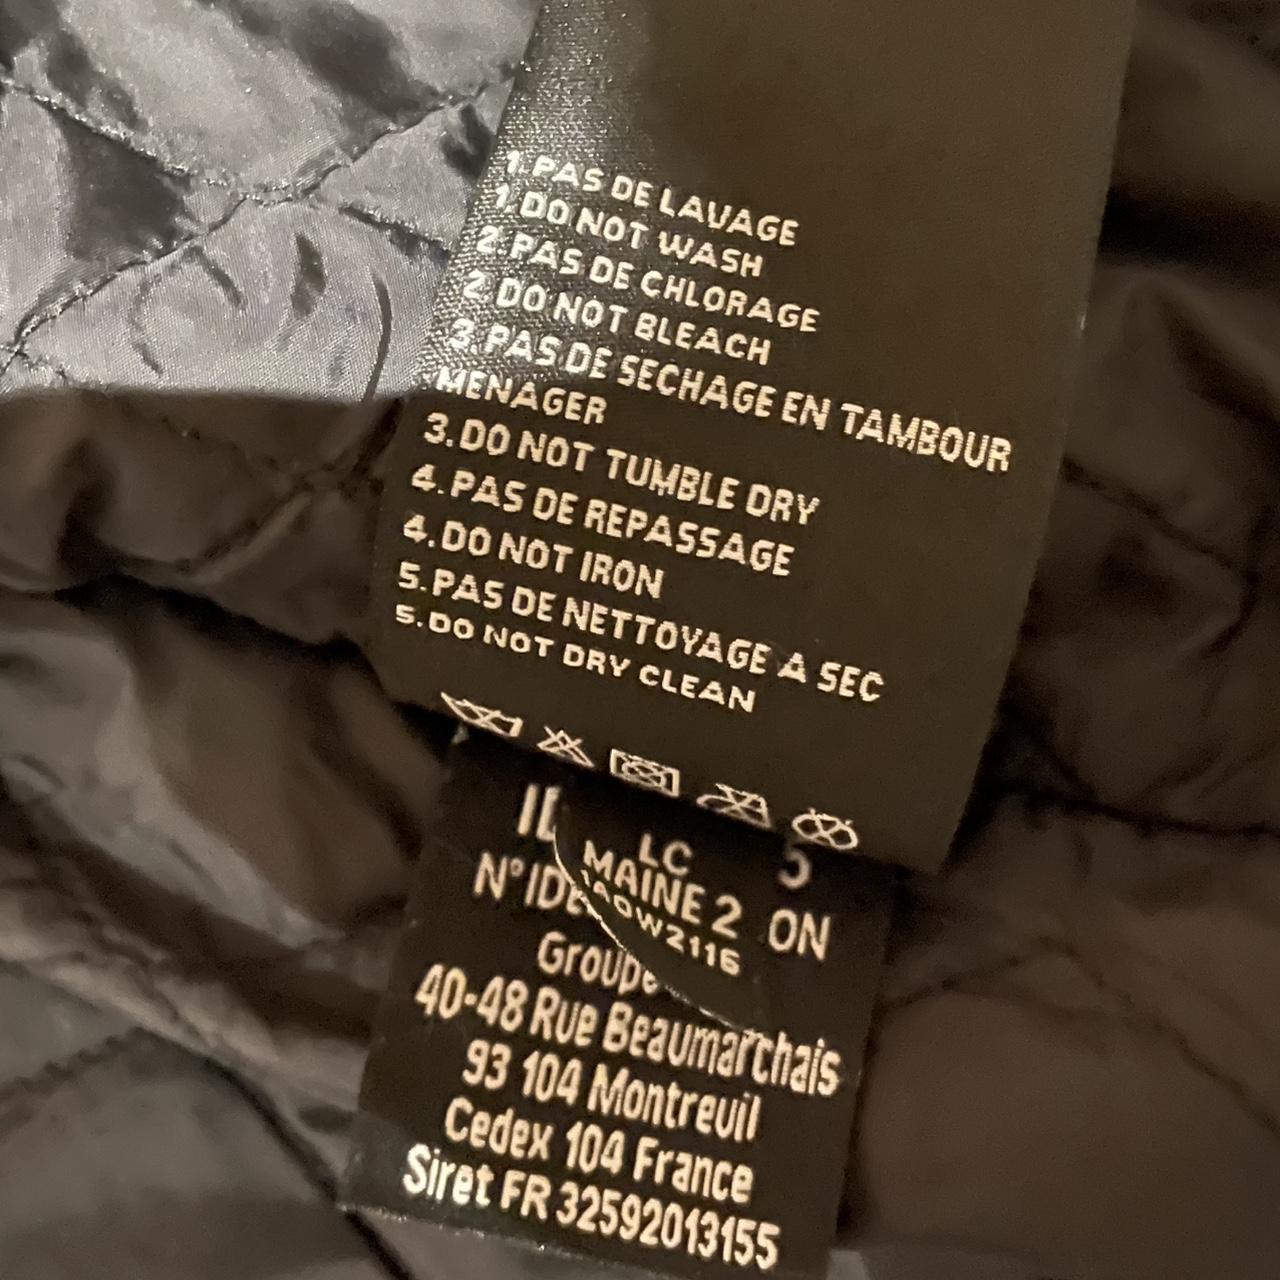 1. PAS DE LAVAGE
1. DO NOT WASH
2. PAS DE CHLORAGE
2. DO NOT BLEACH
3. PAS DE SECHAGE EN TAMBOUR
MENAGER
3. DO NOT TUMBLE DRY
4. PAS DE REPASSAGE
4. DO NOT IRON
5. PAS DE NETTOYAGE A SEC
5. DO NOT DRY CLEAN
LC
MAINE 2
N° ID ON
Groupe
40-48 Rue Beaumarchais
93 104 Montreuil
Cedex 104 France
Siret FR 32592013155